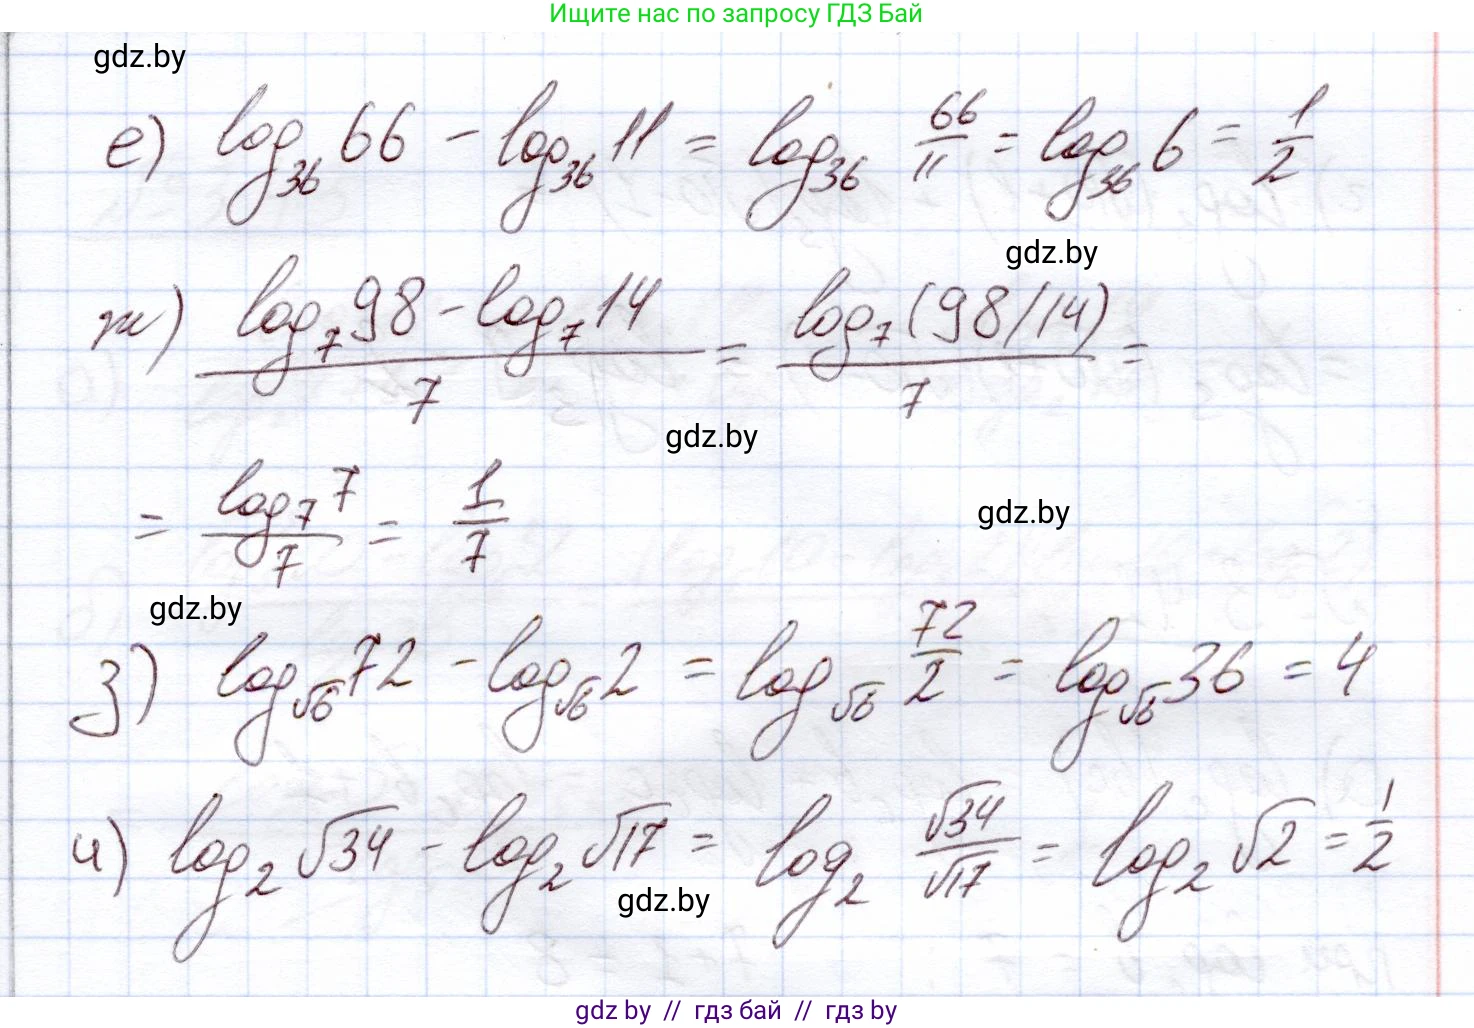 Ищите нас по запросу ГДЗ Бай
gdz.by
е) log₃₆ 66 - log₃₆ 11 = log₃₆ 66/11 = log₃₆ 6 = 1/2
gdz.by
ж) (log₇ 98 - log₇ 14)/7 = (log₇ (98/14))/7 =
gdz.by
= (log₇ 7)/7 = 1/7
gdz.by
gdz.by
з) log_√6 72 - log_√6 2 = log_√6 72/2 = log_√6 36 = 4
и) log₂ √34 - log₂ √17 = log₂ √34/√17 = log₂ √2 = 1/2
gdz.by
gdz by // гдз бай // гдз by